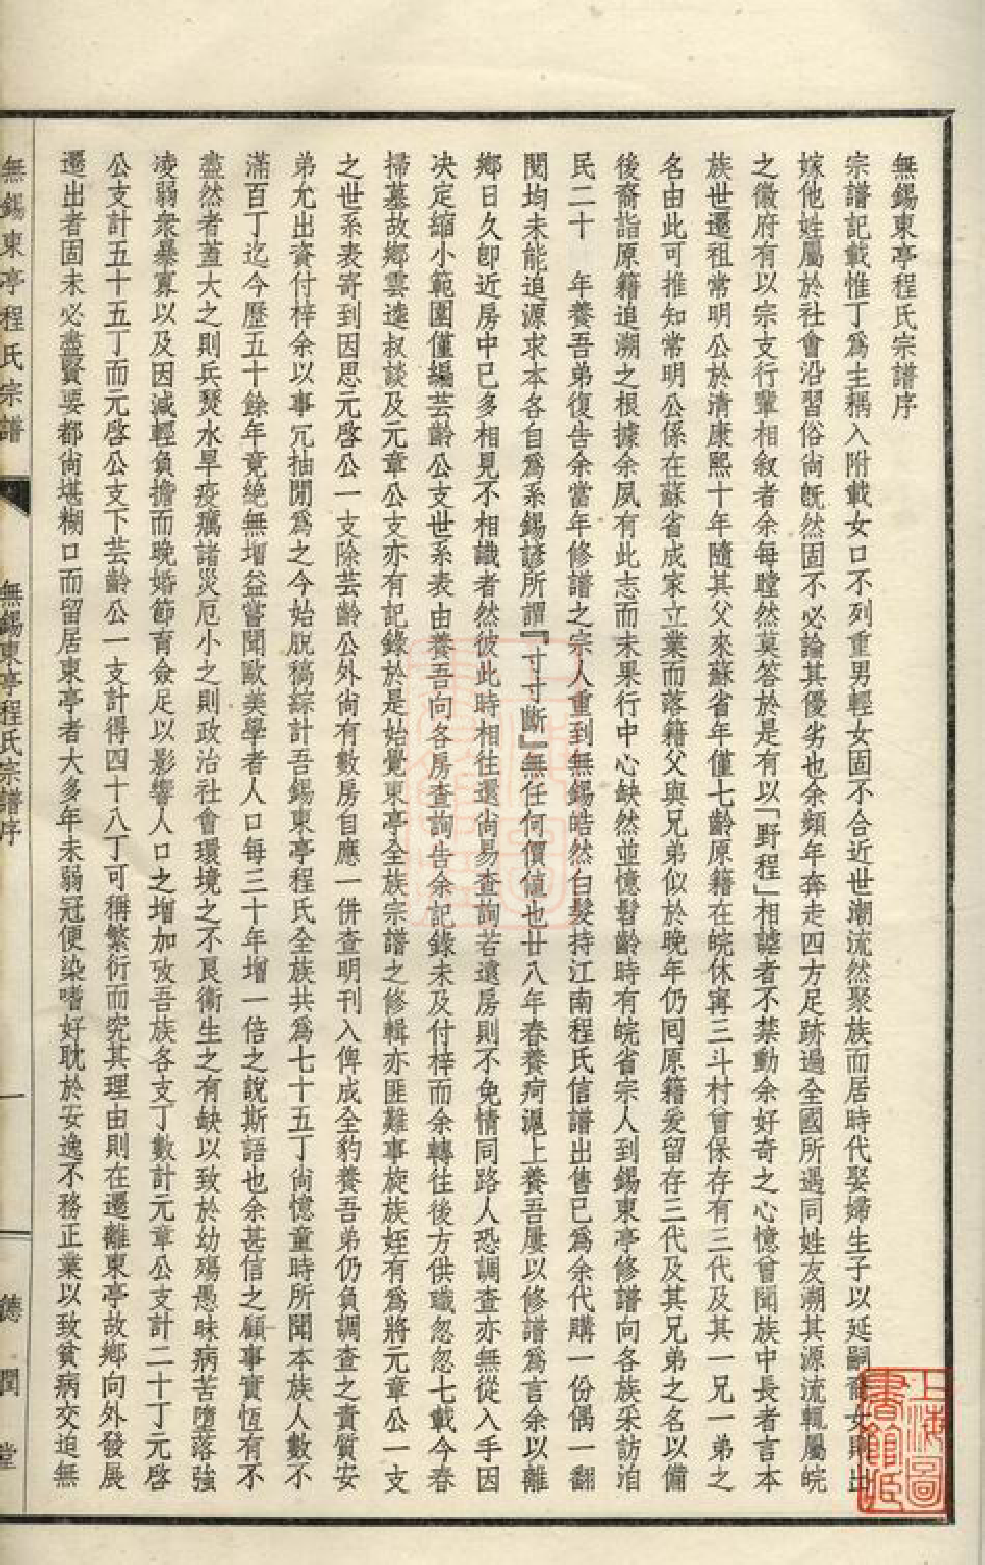 無錫東亭程氏宗譜序
宗譜記載惟丁爲主稱入附載女口不列重男輕女固不合近世潮流然聚族而居時代娶婦生子以延嗣裔女則出
嫁他姓屬於社會沿習俗尙旣然固不必論其優劣也余頻年奔走四方足跡遍全國所遇同姓友溯其源流輒屬皖
之徽府有以宗支行輩相敘者余每瞠然莫答於是有以「野程」相謔者不禁動余好奇之心憶曾聞族中長者言本
族世遷祖常明公於清康熙十年隨其父來蘇省年僅七齡原籍在皖休寗三斗村曾保存有三代及其一兄一弟之
名由此可推知常明公係在蘇省成家立業而落籍父與兄弟似於晚年仍囘原籍爰留存三代及其兄弟之名以備
後裔詣原籍追溯之根據余夙有此志而未果行中心缺然並憶髫齡時有皖省宗人到錫東亭修譜向各族采訪洎
民二十　年養吾弟復告余當年修譜之宗人重到無錫皓然白髮持江南程氏信譜出售已爲余代購一份偶一翻
閱均未能追源求本各自爲系錫諺所謂『寸寸斷』無任何價値也廿八年春養疴滬上養吾屢以修譜爲言余以離
鄉日久卽近房中已多相見不相識者然彼此時相往還尙易查詢若遠房則不免情同路人恐調查亦無從入手因
決定縮小範圍僅編芸齡公支世系表由養吾向各房查詢告余記錄未及付梓而余轉往後方供職忽忽七載今春
掃墓故鄉雲逵叔談及元章公支亦有記錄於是始覺東亭全族宗譜之修輯亦匪難事旋族姪有爲將元章公一支
之世系表寄到因思元啓公一支除芸齡公外尙有數房自應一併查明刊入俾成全豹養吾弟仍負調查之責質安
弟允出資付梓余以事冗抽閒爲之今始脫稿綜計吾錫東亭程氏全族共爲七十五丁尙憶童時所聞本族人數不
滿百丁迄今歷五十餘年竟絕無增益嘗聞歐美學者人口每三十年增一倍之說斯語也余甚信之顧事實恆有不
盡然者蓋大之則兵燹水旱疫癘諸災厄小之則政治社會環境之不良衛生之有缺以致於幼殤愚昧病苦墮落強
凌弱衆暴寡以及因減輕負擔而晚婚節育僉足以影響人口之增加攷吾族各支丁數計元章公支計二十丁元啓
公支計五十五丁而元啓公支下芸齡公一支計得四十八丁可稱繁衍而究其理由則在遷離東亭故鄉向外發展
遷出者固未必盡賢要都尙堪糊口而留居東亭者大多年未弱冠便染嗜好耽於安逸不務正業以致貧病交迫無
無錫東亭程氏宗譜　無錫東亭程氏宗譜序　一　德潤堂
上海圖書館藏